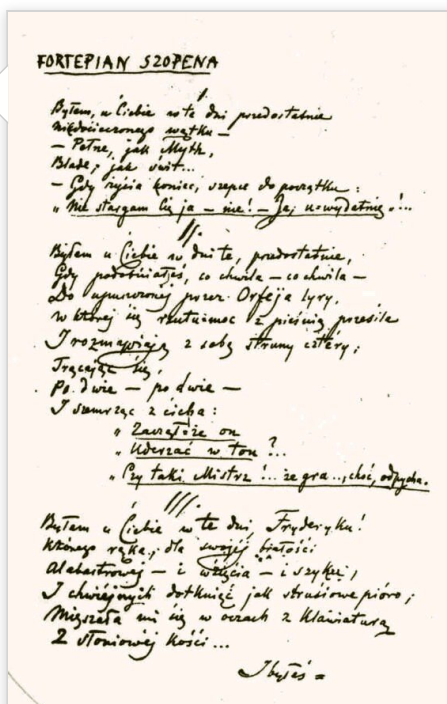 FORTEPIAN SZOPENA
I.
Byłem u Ciebie w te dni przedostatnie
Niedocieczonego wątku —
— Pełne, jak Myth,
Blade, jak świt...
— Gdy życia koniec, szepce do początku:
„ Nie stargam Cię ja — nie! — Ja, u-wydatnię! ...
II.
Byłem u Ciebie w dni te, przedostatnie,
Gdy podobniałeś, co chwila — co chwila —
Do upuszczonej przez Orfeja lyry,
W której się rzutu-moc z pieśnią przesila
I rozmawiają z sobą struny cztéry,
Trącając się,
Po dwie — po dwie —
I szemrząc z cicha:
„ Zacząłże on
„ Uderzać w ton ?..
„ Czy taki Mistrz !... że gra.., choć, odpycha.
III.
Byłem u Ciebie w te dni, Fryderyku!
Którego ręka, dla swojéj białości
Alabastrowéj — i wzięcia — i szyku,
I chwiejnych dotknięć jak strusiowe pióro,
Mięszała mi się w oczach z klawiaturą
Z słoniowéj kości...
I byłeś =